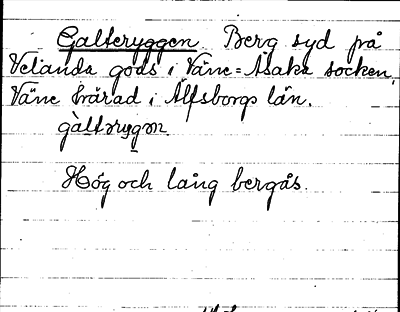 Galteryggen Berg syd på
Velanda gods i Väne=Åsaka socken,
Väne härad i Älfsborgs län.
gàltərygən.
Hög och lång bergås.